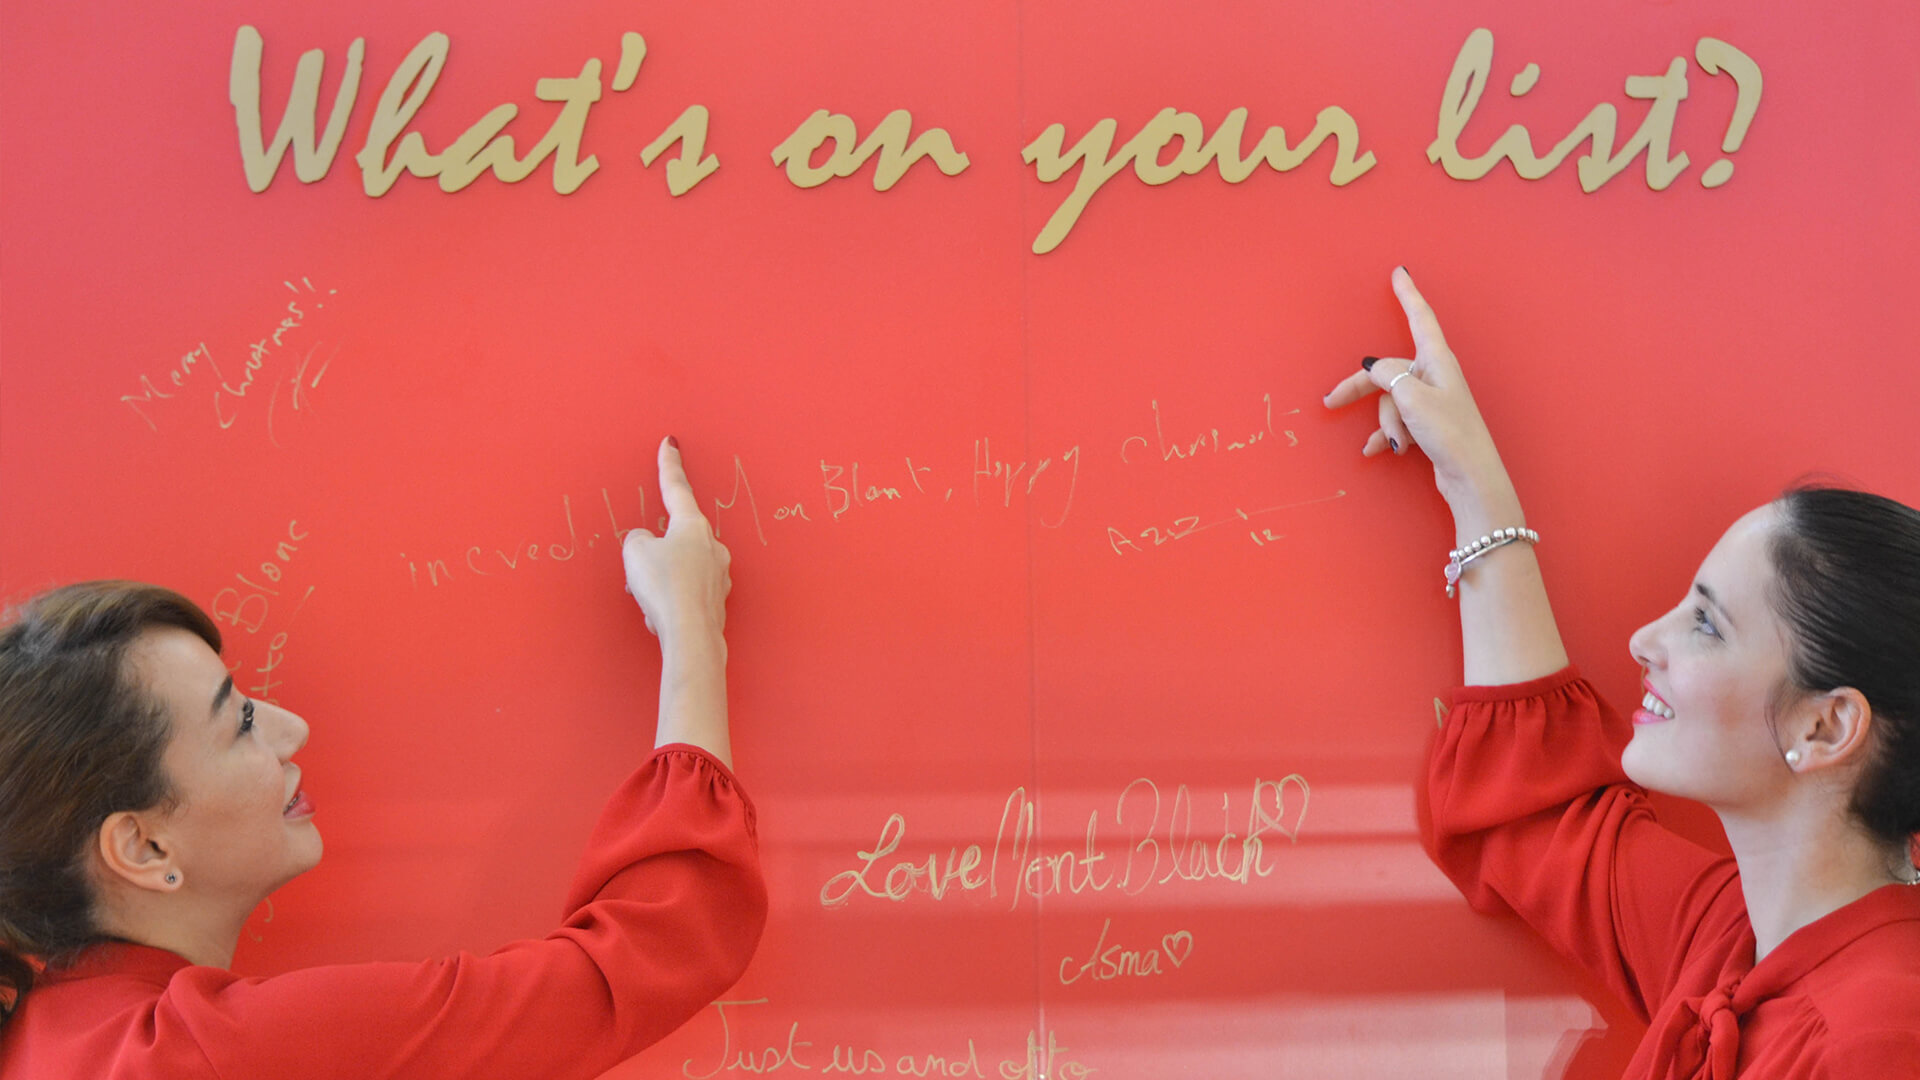 What's on your list?
Merry
christmas!!
incredible Mon Blant, Happy christmats
Aziz
12
Blonc
otto
Love Mont Blach
Asma
Just us and otto